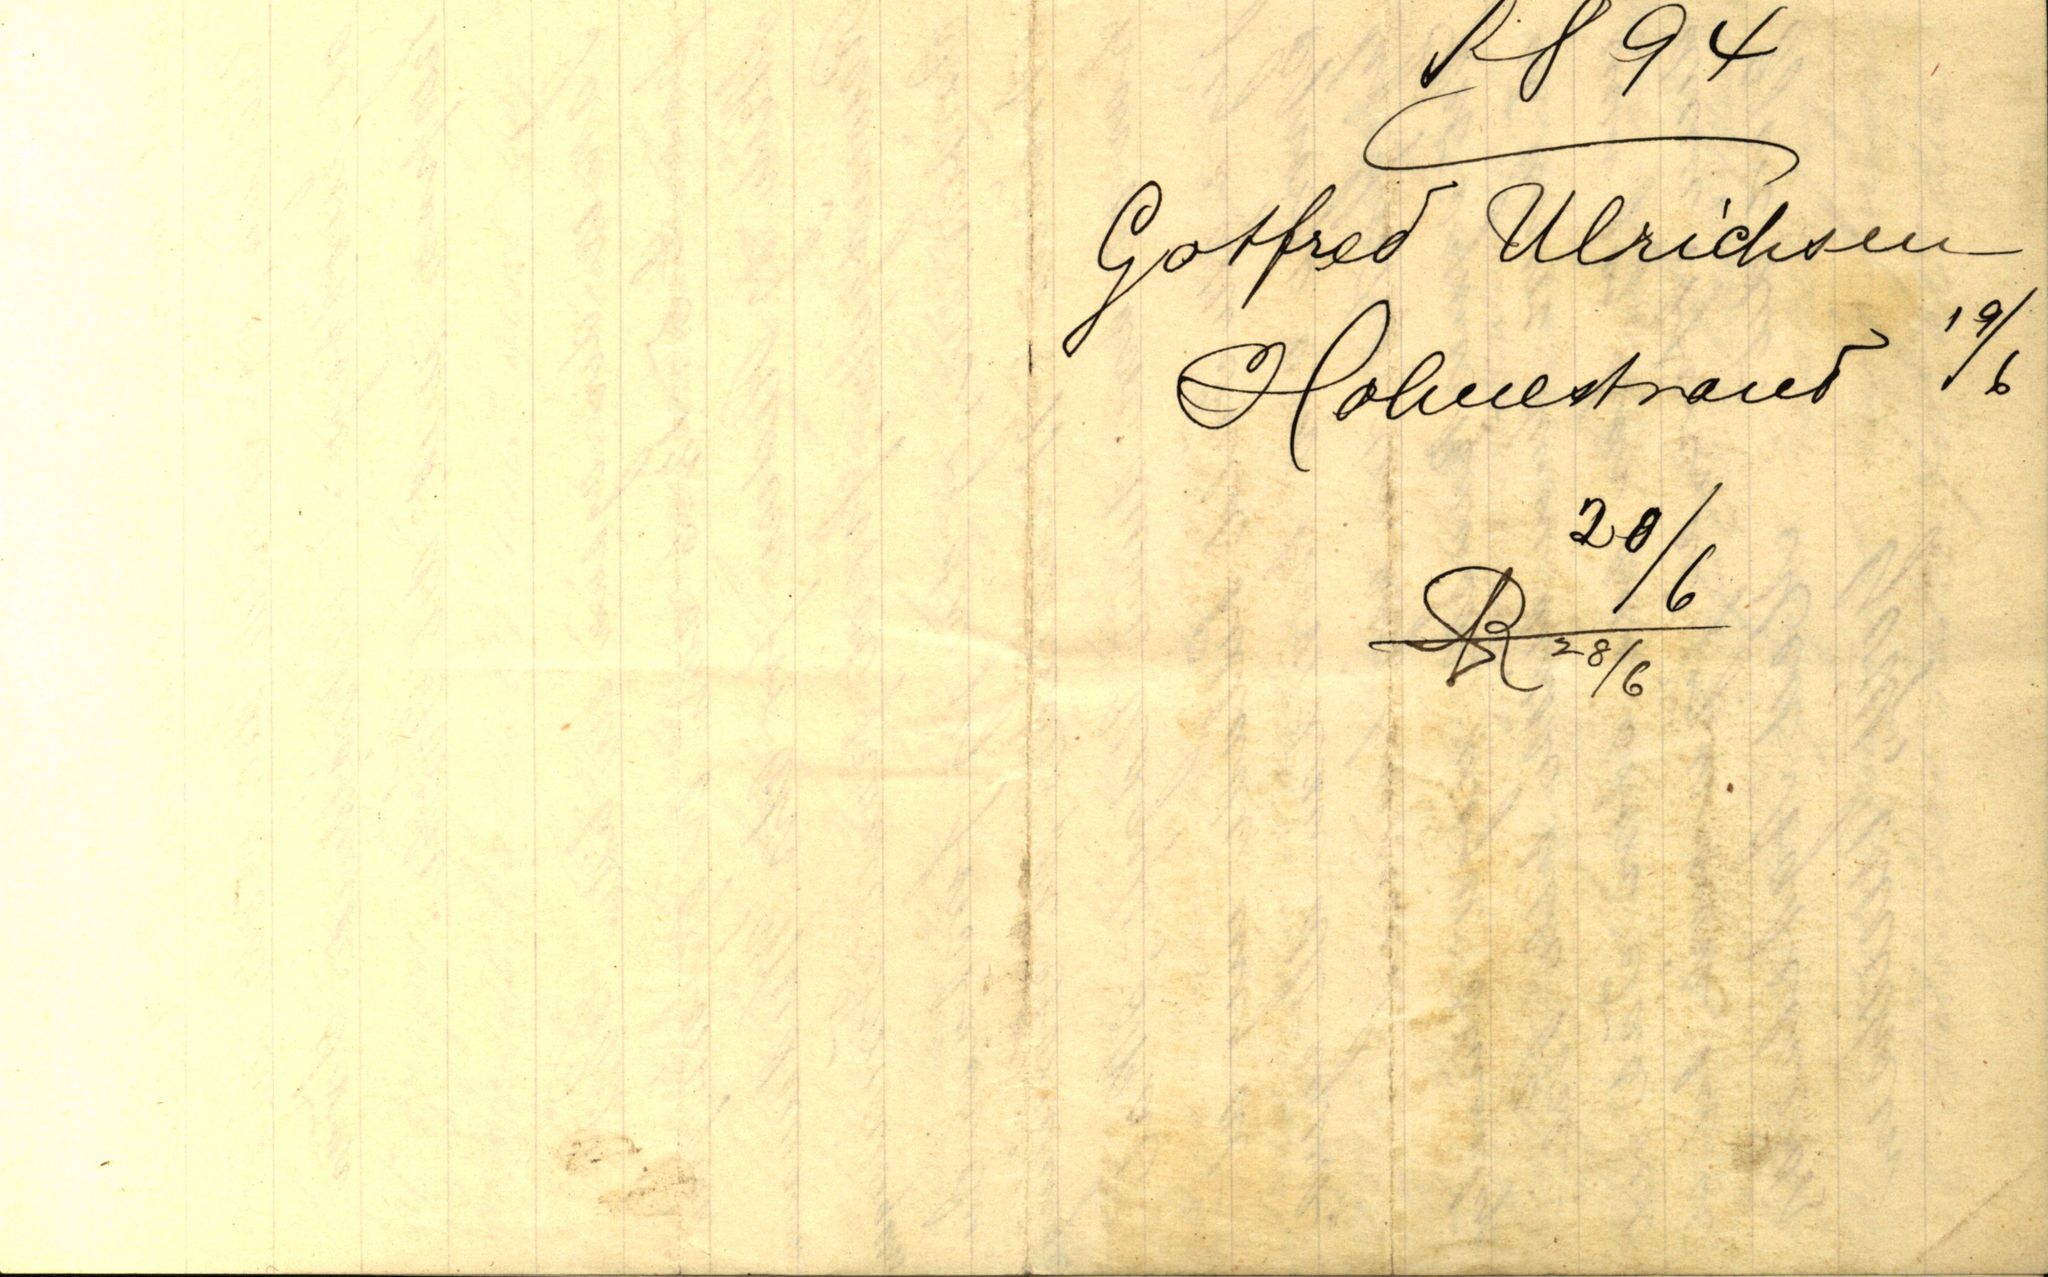 1894
Gotfred Ulrichsen
Holmestrand 19/6
20/6
R 28/6